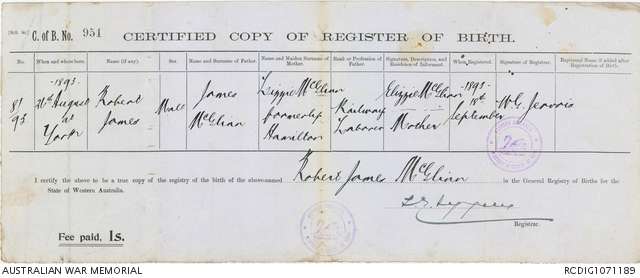 C. of B. No. 951
CERTIFIED COPY OF REGISTER OF BIRTH.
No.
When and where born.
Name (if any).
Sex.
Name and Surname of Father.
Name and Maiden Surname of Mother.
Rank or Profession of Father.
Signature, Description, and Residence of Informant.
When Registered.
Signature of Registrar.
Baptismal Name if added after Registration of Birth.
81
93
1893
21st August
at
York
Robert
James
Male
James
McGlinn
Lizzie McGlinn
formerly
Hamilton
Railway
Laborer
Lizzie McGlinn
Mother
1893
18th
September
W G Jearvois
I certify the above to be a true copy of the registry of the birth of the abovenamed Robert James McGlinn in the General Registry of Births for the
State of Western Australia.
Registrar.
Fee paid, 1s.
AUSTRALIAN WAR MEMORIAL
RCDIG1071189